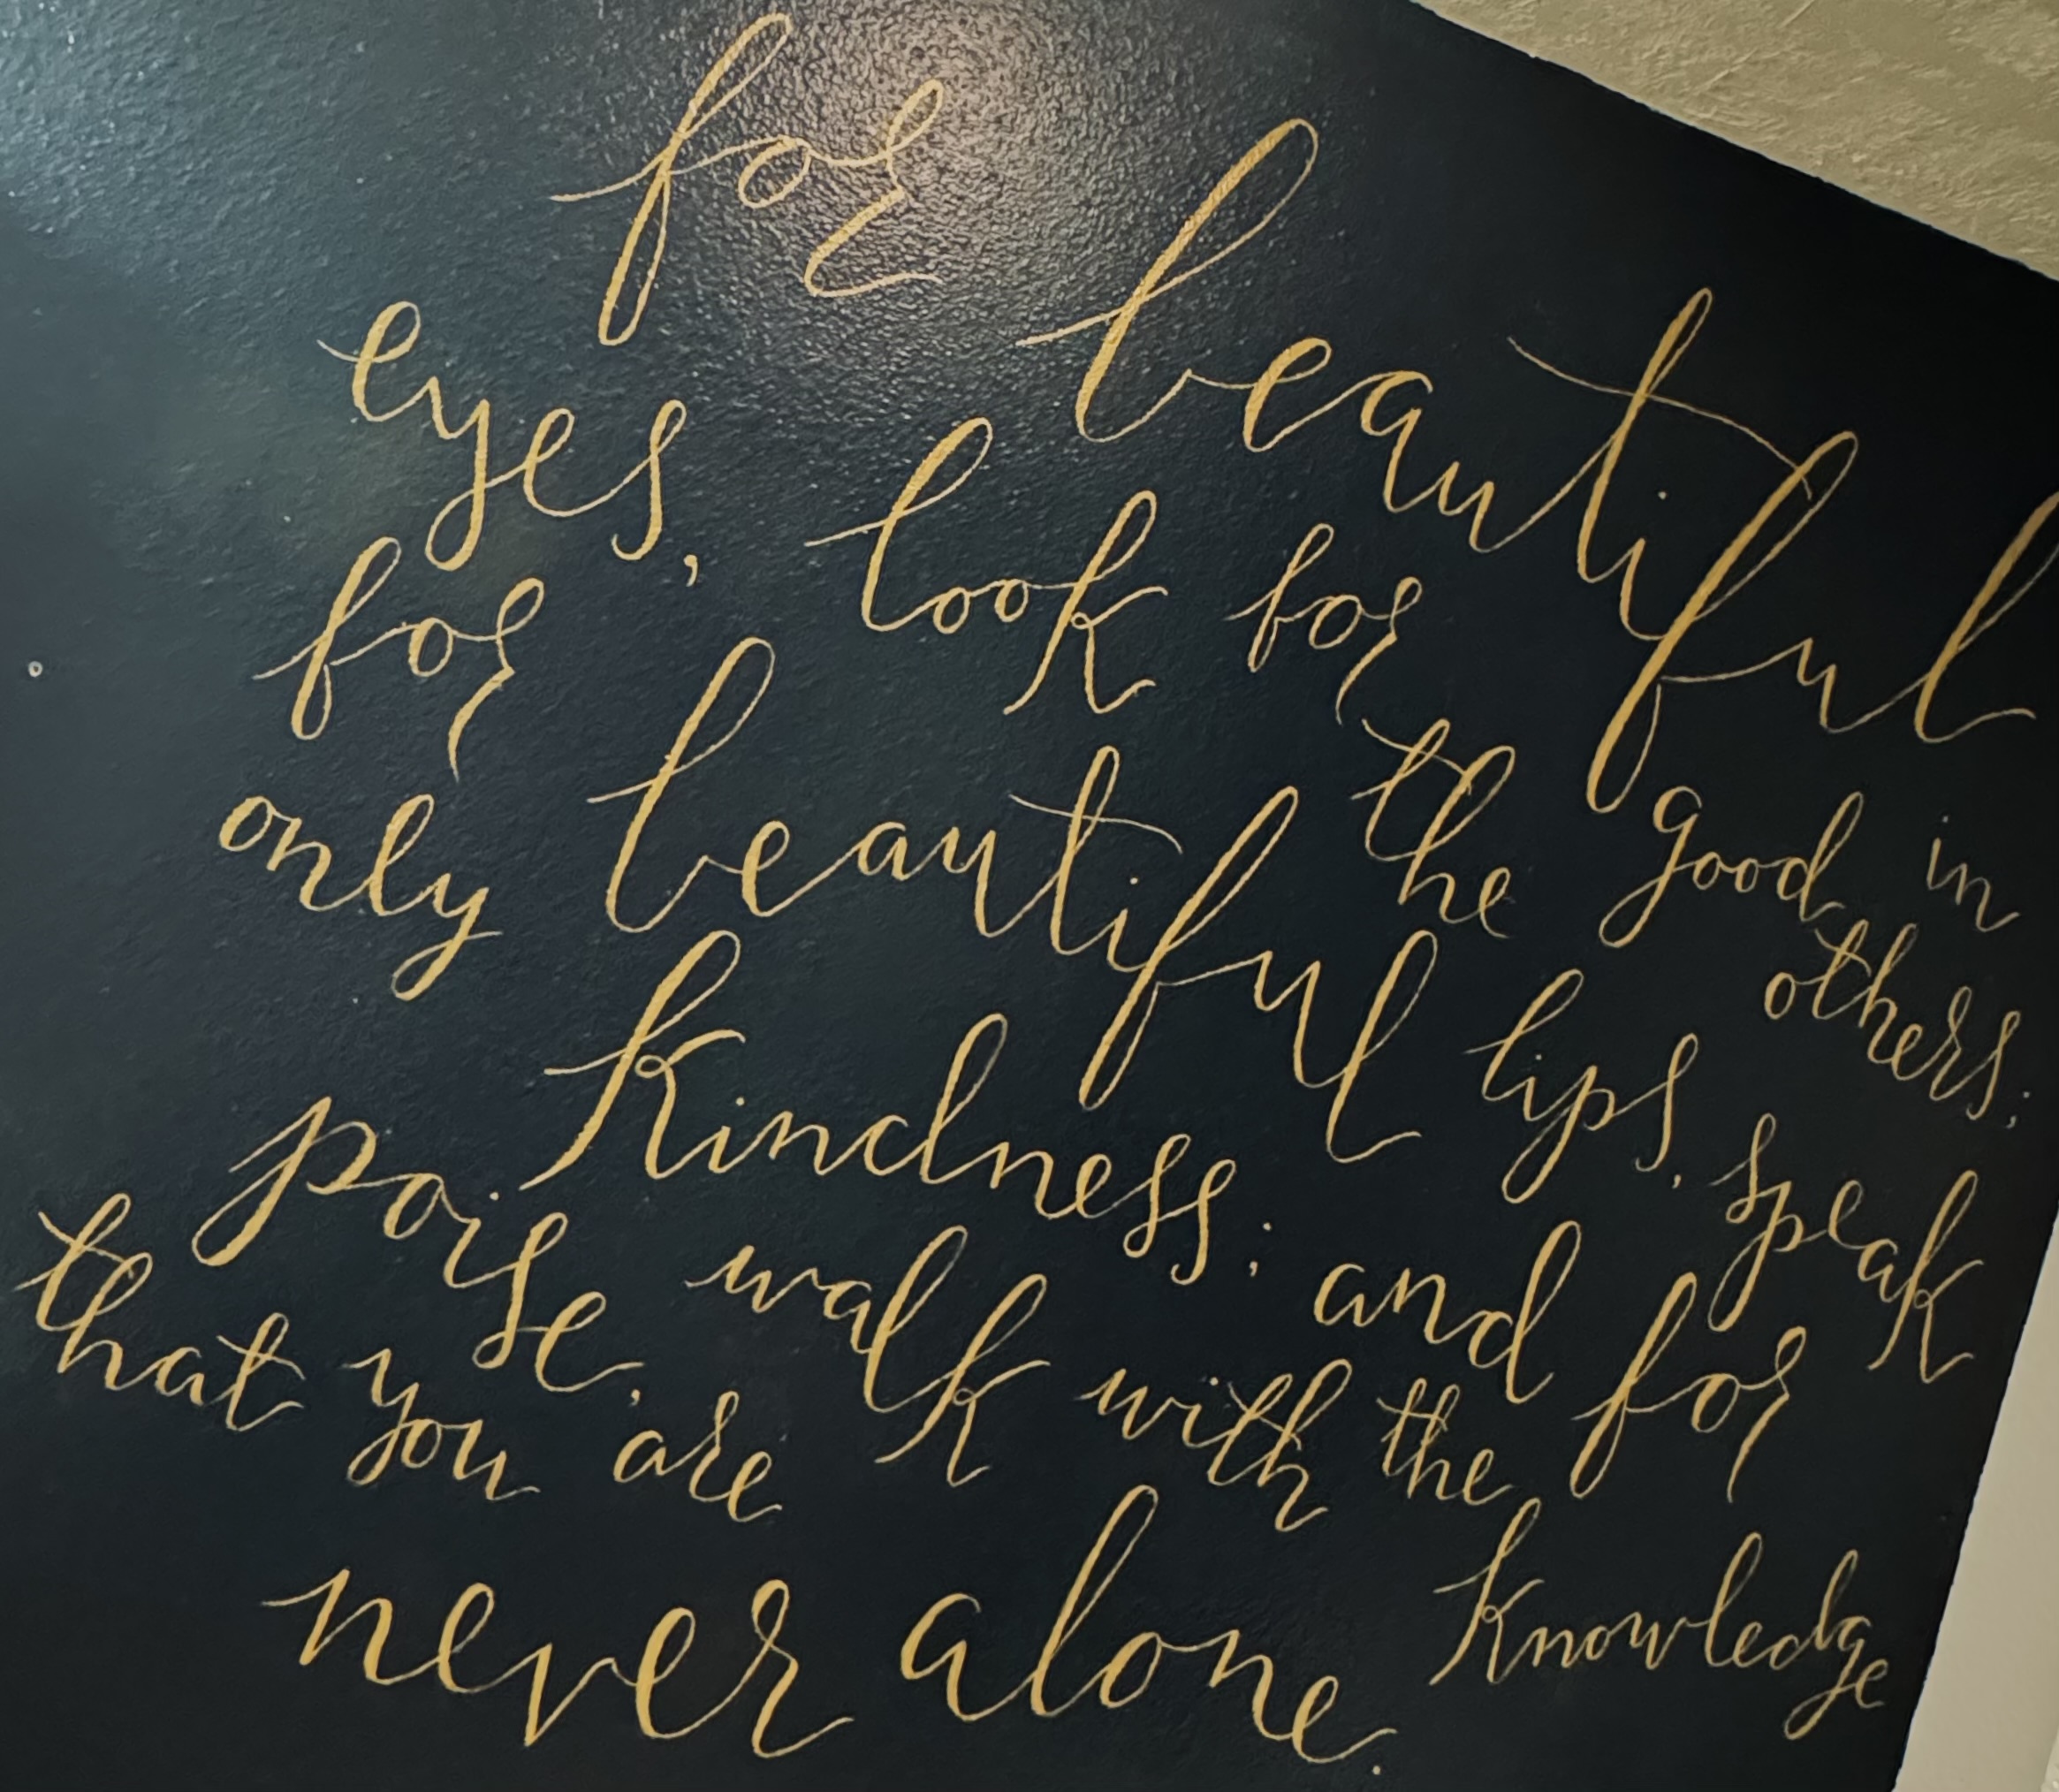 for beautiful
eyes, look for the good in others;
for beautiful lips, speak
only kindness; and for
poise, walk with the knowledge
that you are
never alone.